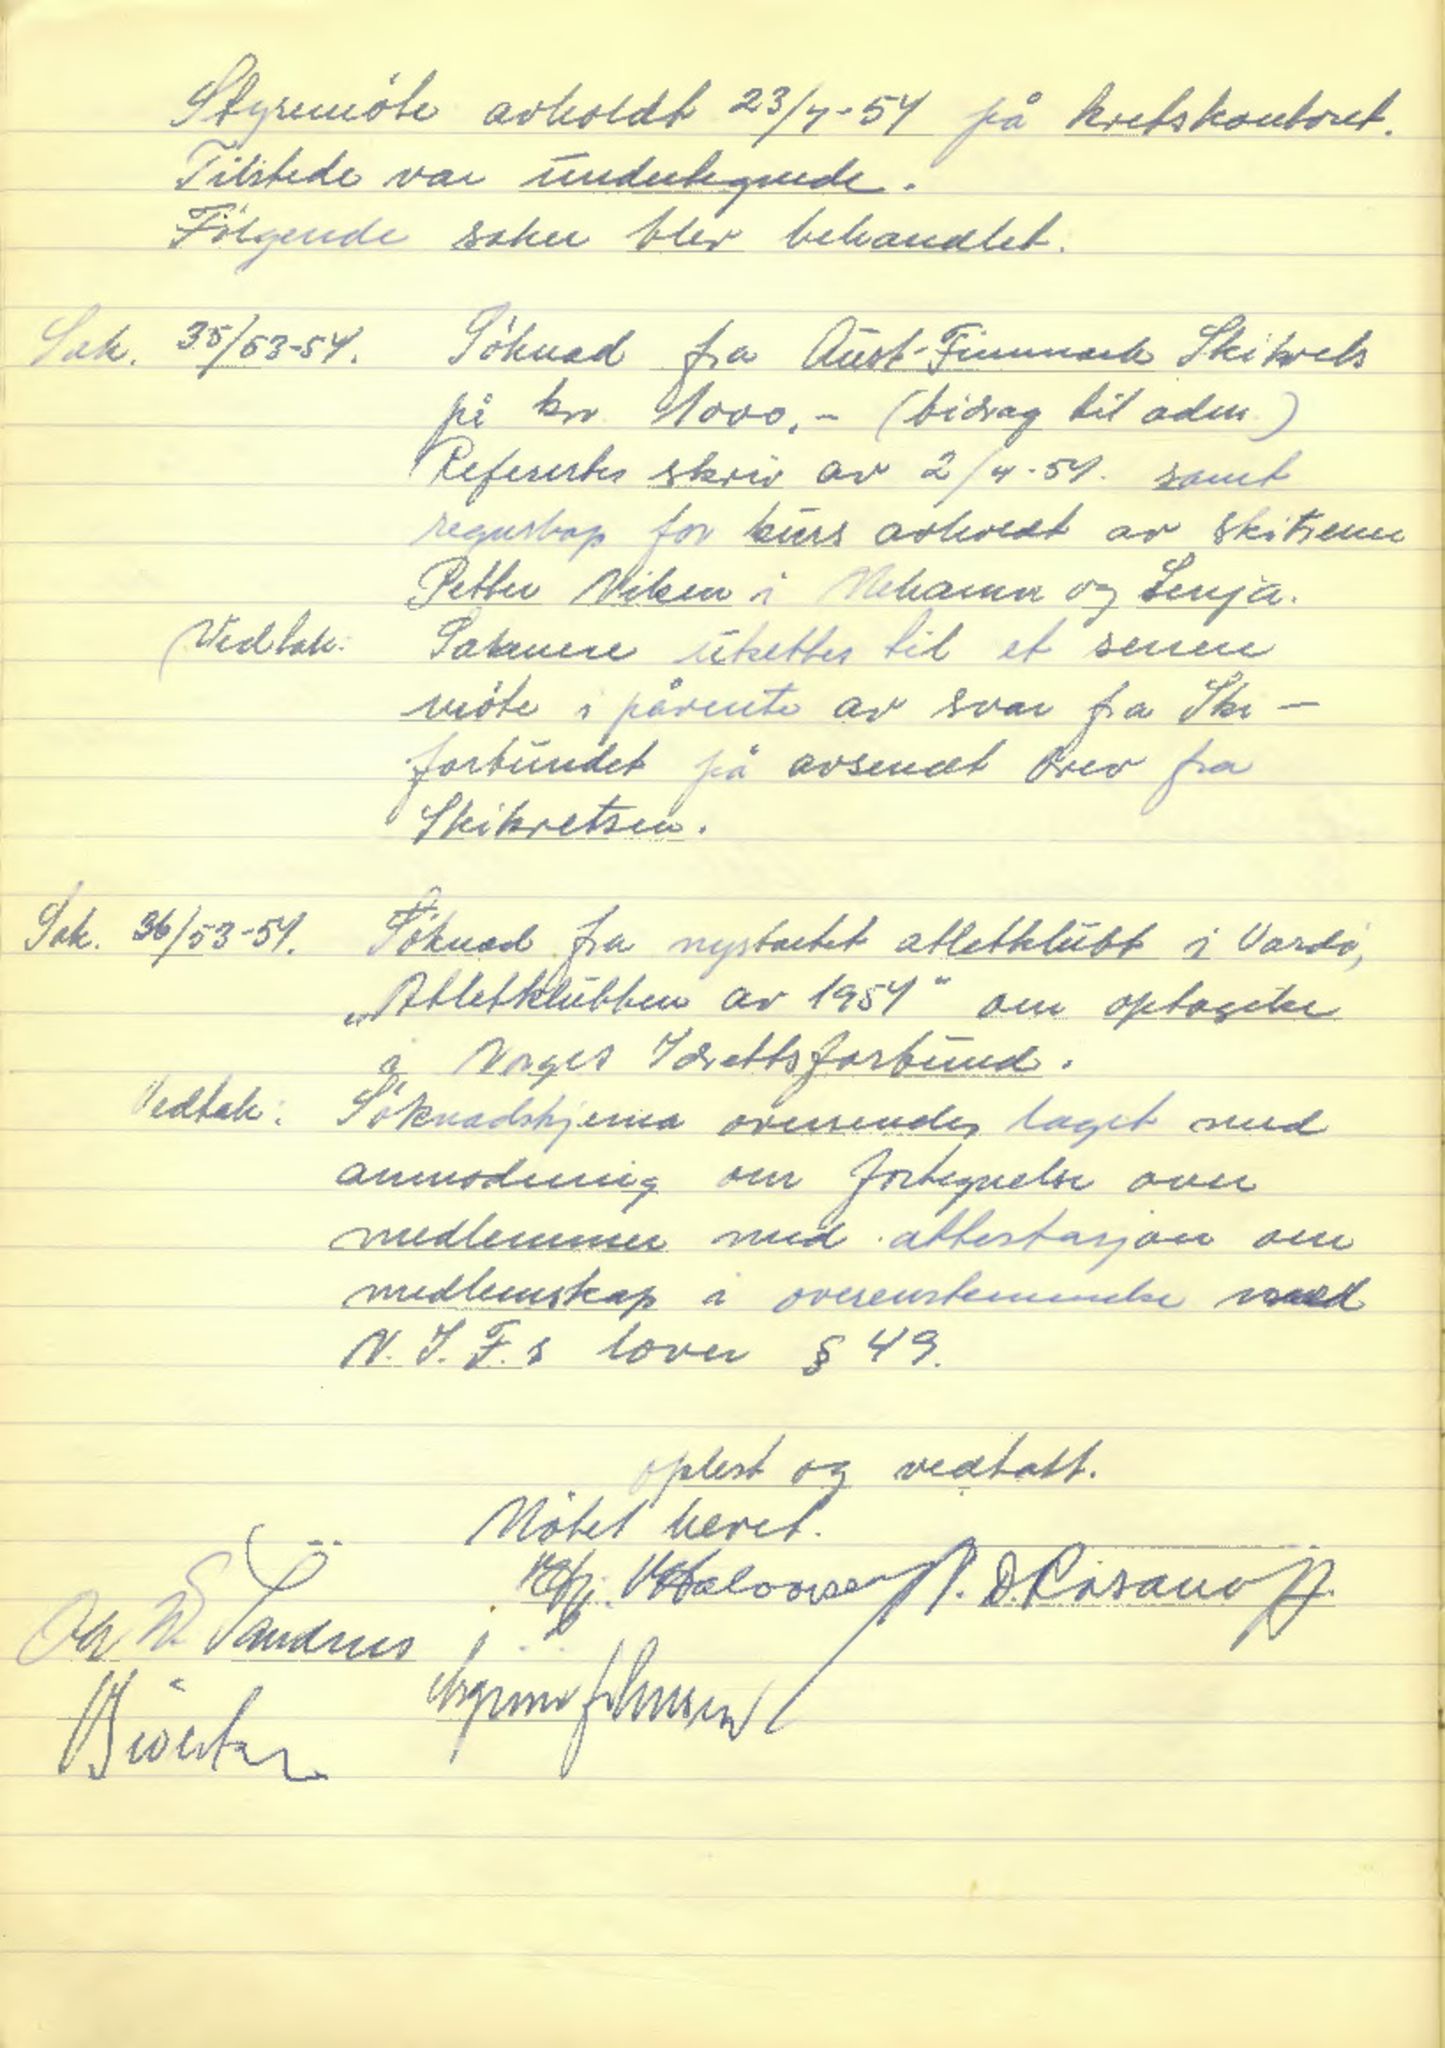 Styremöte avholdt 23/4-54 på kretskontoret.
Tilstede var undertegnede.
Följgende saker blev behandlet.
Sak. 35/53-54. Söknad fra Aust-Finnmark Skikrets
på kr 1000,- (bidrag til adm.)
Refertes skriv av 2/4-54. samt
regnskap for kurs avholdt av skitrener
Petter Viken i Mehamn og Lenja.
Vedtak: Sakene utsettes til et senere
möte i påvente av svar fra Ski-
forbundet på avsendt brev fra
Skikretsen.
Sak. 36/53-54. Söknad fra nystartet atletklubb i Vardö,
„Atletklubben av 1954" om optagelse
i Norges Idrettsforbund.
Vedtak: Söknadskjema oversendes laget med
anmodning om fortegnelse over
medlemmer med attestasjon om
medlemskap i overenstemmelse med
N.I.F.s lover § 49.
oplest og vedtatt.
Mötet hevet.
Halvorsen P. D. Rasanoff.
Sandnes
Johnsen